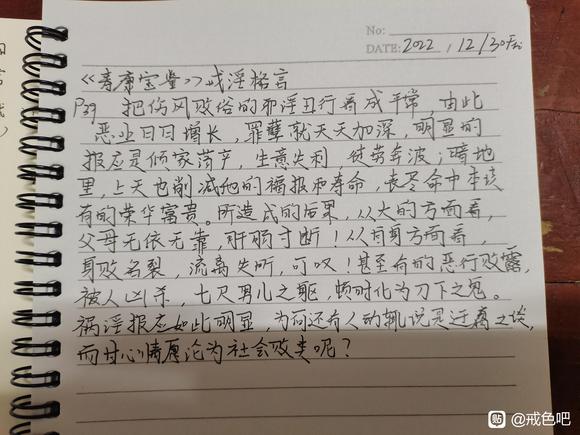 No:
DATE: 2022 / 12 / 30 Fri
《寿康宝鉴》戒淫格言
P39 把伤风败俗的邪淫丑行看成平常，由此
恶业日日增长，罪孽就天天加深，明显的
报应是倾家荡产，生意失利 徒劳奔波；暗地
里，上天也削减他的福报和寿命，丧尽命中本该
有的荣华富贵。所造成的后果，从大的方面看，
父母无依无靠，肝肠寸断！从自身方面看，
身败名裂，流离失所，可叹！甚至有的恶行败露，
被人凶杀，七尺男儿之躯，顿时化为刀下之鬼。
祸淫报应如此明显，为何还有人动辄说是迂腐之谈，
而甘心情愿沦为社会败类呢？
贴 @戒色吧